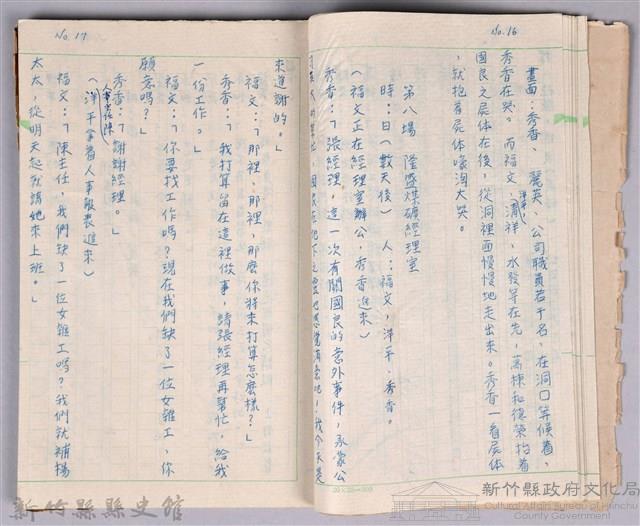 No.16
畫面：秀香、麗英、公司職員若干名，在洞口等候着，
秀香在哭。而福文、洋平、清祥，水發等在先，萬棟和德榮抬着
國良之屍体在後，從洞裡面慢慢地走出來。秀香一看屍体
，就抱着屍体嚎淘大哭。
第八場　隆盛煤礦經理室
時：日（數天後）　人：福文，洋平、秀香。
（福文正在經理室辦公，秀香進來）
秀香：「張經理，這一次有關國良的意外事件，承蒙公
No.17
來道謝的。」
福文：「那裡，那裡，那麼你將來打算怎麼樣？」
秀香：「我打算留在這裡做事，請張經理再幫忙，給我
一份工作。」
福文：「你要找工作嗎？現在我們缺了一位女雜工，你
願意嗎？」
秀香：「謝謝經理。」
（洋平拿着人事報表進來）
福文：「陳主任，我們缺了一位女雜工嗎？我們就補楊
太太，從明天起就請她來上班。」
新竹縣縣史館
新竹縣政府文化局
Cultural Affairs Bureau of Hsinchu
County Government